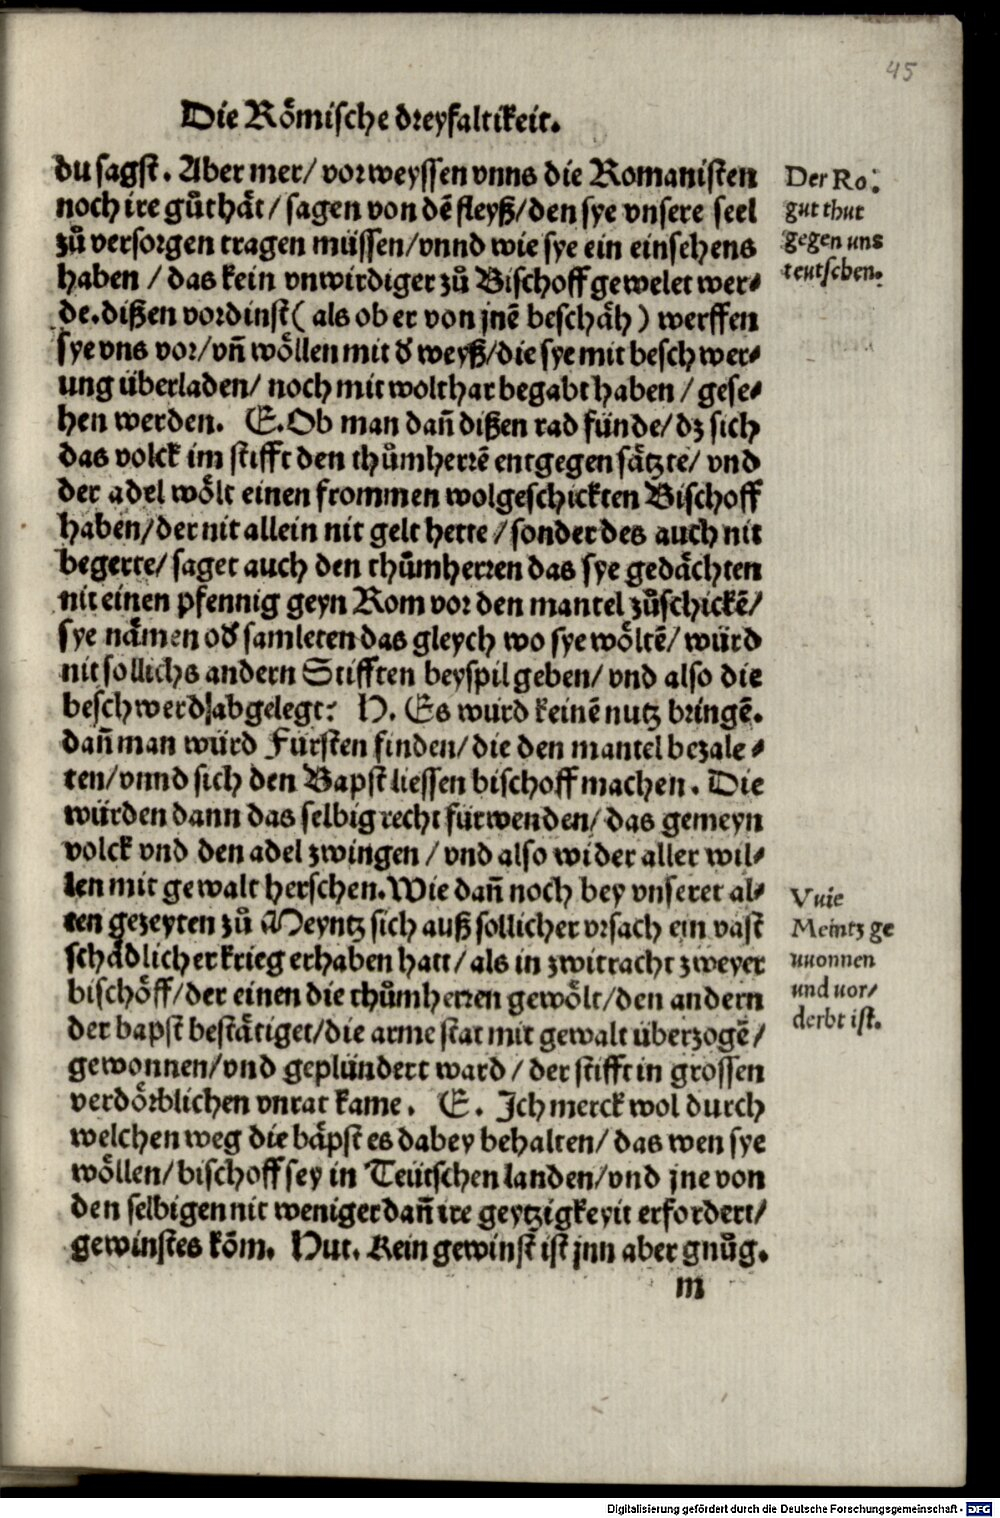 45
Die Römische dreyfaltikeit.
du sagst. Aber mer/ vorweyssen vnns die Romanisten
noch ire gůthät/ sagen von dē fleyß/den sye vnsere seel
zů versorgen tragen müssen/vnnd wie sye ein einsehens
haben / das kein vnwirdiger zů Bischoff gewelet wer⸗
de.dißen vordinst( als ob er von jnē beschäh ) werffen
sye vns vor/vñ wöllen mit d̓ weyß/die sye mit beschwer⸗
ung überladen/ noch mit wolthat begabt haben / gese⸗
hen werden. E.Ob man dañ dißen rad fünde/dz sich
das volck im stifft den thůmherrē entgegen sätzte/ vnd
der adel wölt einen frommen wolgeschickten Bischoff
haben/der nit allein nit gelt hette/sonder des auch nit
begerte/ saget auch den thůmherren das sye gedächten
nit einen pfennig geyn Rom vor den mantel zůschickē/
sye nämen od̓ samleten das gleych wo sye wöltē/ würd
nit sollichs andern Stifften beyspil geben/ vnd also die
beschwerd abgelegt: H. Es wurd keinē nutz bringē.
dañ man würd Fürsten finden/die den mantel bezale⸗
ten/vnnd sich den Bapst liessen bischoff machen. Die
würden dann das selbig recht fürwenden/ das gemeyn
volck vnd den adel zwingen / vnd also wider aller wil⸗
len mit gewalt herschen.Wie dañ noch bey vnseret al⸗
ten gezeyten zů Meyntz sich auß sollicher vrsach ein vast
schädlicher krieg erhaben hatt/als in zwitracht zweyer
bischöff/der einen die thůmherren gewölt/den andern
der bapst bestätiget/die arme stat mit gewalt überzogē/
gewonnen/vnd geplündert ward / der stifft in grossen
verdörblichen vnrat kame. E. Jch merck wol durch
welchen weg die bäpst es dabey behalten/ das wen sye
wöllen/bischoff sey in Teütschen landen/vnd jne von
den selbigen nit weniger dañ ire geytzigkeyit erfordert/
gewinstes kōm. Hut. Kein gewinst ist jnn aber gnůg.
m
Der Ro.
gut thut
gegen uns
teutschen.
Vuie
Meintz ge
wonnen
und vor/
derbt ist.
Digitalisierung gefördert durch die Deutsche Forschungsgemeinschaft - DFG